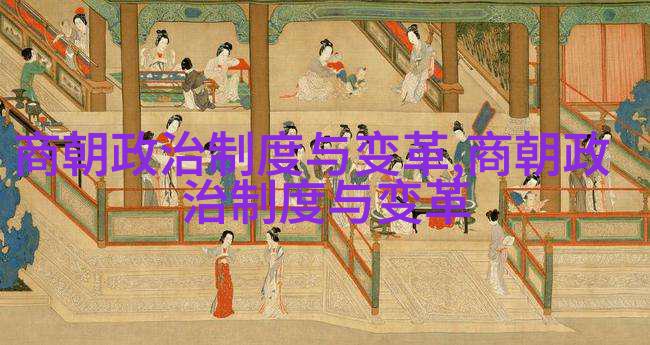 商朝政治制度与变革,商朝政
治制度与变革